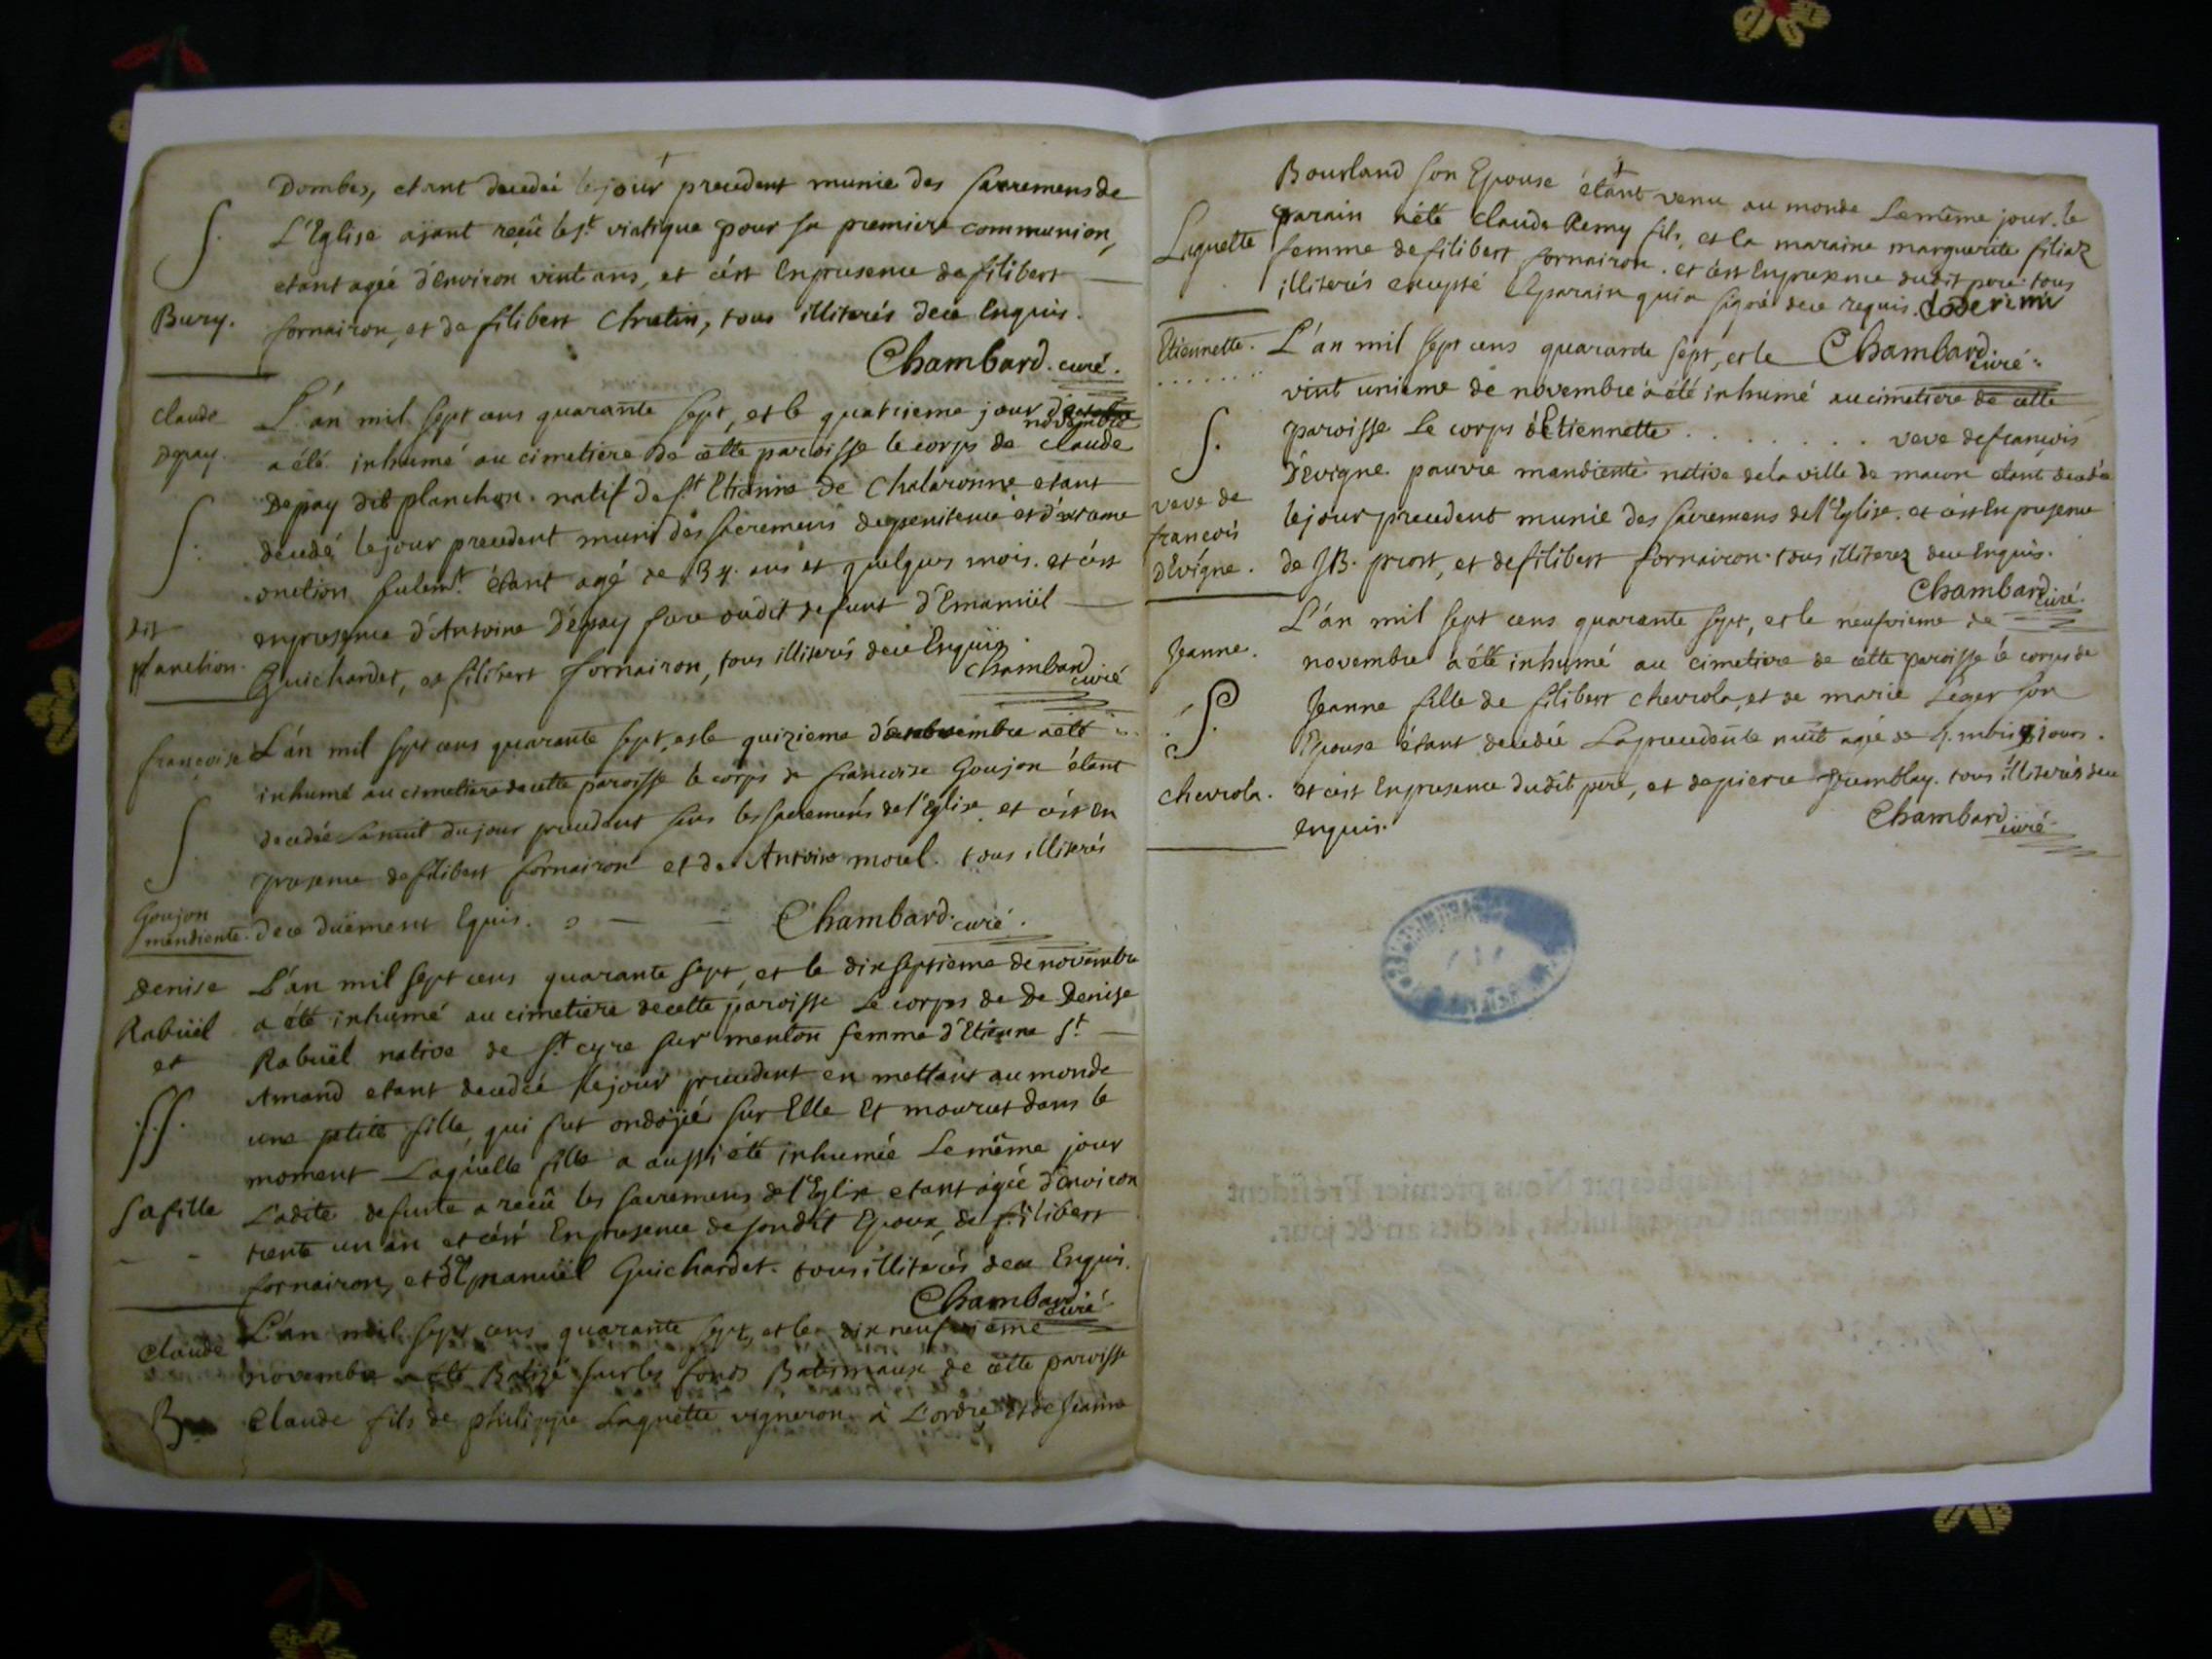 Dombes, etant decedée le jour precedent munie des sacremens de
L'Eglise ajant reçû le st. viatique pour sa premiere communion,
S.
etant agée d'Environ vint ans, et c'est En presence de filibert
Bury.
fornairon, et de filibert Chretin, tous illiterés de ce Enquis.
Chambard. curé.
claude
L'an mil sept cens quarante sept, et le quatrieme jour
novembre
Depay.
a été inhumé au cimetiere de cette paroisse le corps de claude
Depay dit planchon. natif de st Etienne de Chalaronne etant
S.
decedé le jour precedent muni des sacremens de penitence et d'extreme
onction sulemt. étant agé de 34. ans et quelques mois. et c'est
en presence d'Antoine Dépay frere dudit defunt d'Emanüel
dit
planchon.
Guichardet, et filibert fornairon, tous illiterés de ce Enquis.
Chambard curé
françoise
L'an mil sept cens quarante sept, et le quizieme novembre a été
inhumé au cimetiere de cette paroisse le corps de françoise Goujon étant
S.
decedée la nuit du jour precedent sans les sacremens de l'Eglise. et c'est en
presence de filibert fornairon et de Antoine morel. tous illiterés
Goujon
mendiente.
de ce duëment Equis.
Chambard. curé.
Denise
L'an mil sept cens quarante sept, et le dix septieme de novembre
Rabüel
a été inhumé au cimetiere de cette paroisse Le corps de De Denise
et
Rabüel native de st. cyre sur menton femme d'Etienne st
S.S.
Amand etant decedée le jour precedent en mettant au monde
une petite fille, qui fut ondoÿée sur Elle Et mourut dans le
moment Laquelle fille a aussi été inhumée Le même jour
sa fille
Ladite defunte a reçû les sacremens de l'Eglise etant agée d'Environ
trente un an et c'est En presence de son dit Epoux, de filibert
fornairon, et d'Emanüel Guichardet. tous illiterés de ce Enquis.
Chambard curé
claude
L'an mil sept cens quarante sept, et le dix neufvieme
novembre a été Batisé sur les fonds Batismaux de cette paroisse
Claude fils de philippe Laquette vigneron à L'ordre et de Jeanne
Bourland son Epouse étant venu au monde Le même jour. le
Laquette
parain a été claude Remy fils, et la maraine marguerite filiaz
femme de filibert fornairon. et c'est En presence dudit pere. tous
illiterés excepté Le parain qui a signé de ce requis. clode remi
Etiennette.
L'an mil sept cens quarante sept, et le Chambard curé.
vint unieme de novembre a été inhumé au cimetiere de cette
S.
paroisse Le corps d'Etiennette . . . . . . . . . veve de françois
D'Evigne pauvre mandiente native de la ville de macon etant decedée
veve de
françois
le jour precedent munie des sacremens de l'Eglise. et c'est En presence
D'Evigne.
de JB. prost, et de filibert fornairon. tous illiterez de ce Enquis.
Chambard curé.
L'an mil sept cens quarante sept, et le neufvieme de
Jeanne.
novembre a été inhumé au cimetiere de cette paroisse le corps de
S.
Jeanne fille de filibert chevrola, et de marie Leger son
Epouse étant decedée La precedente nuit agée de mois jours.
chevrola.
et c'est En presence dudit pere, et de pierre Tremblay. tous illiterés de ce
Enquis.
Chambard curé